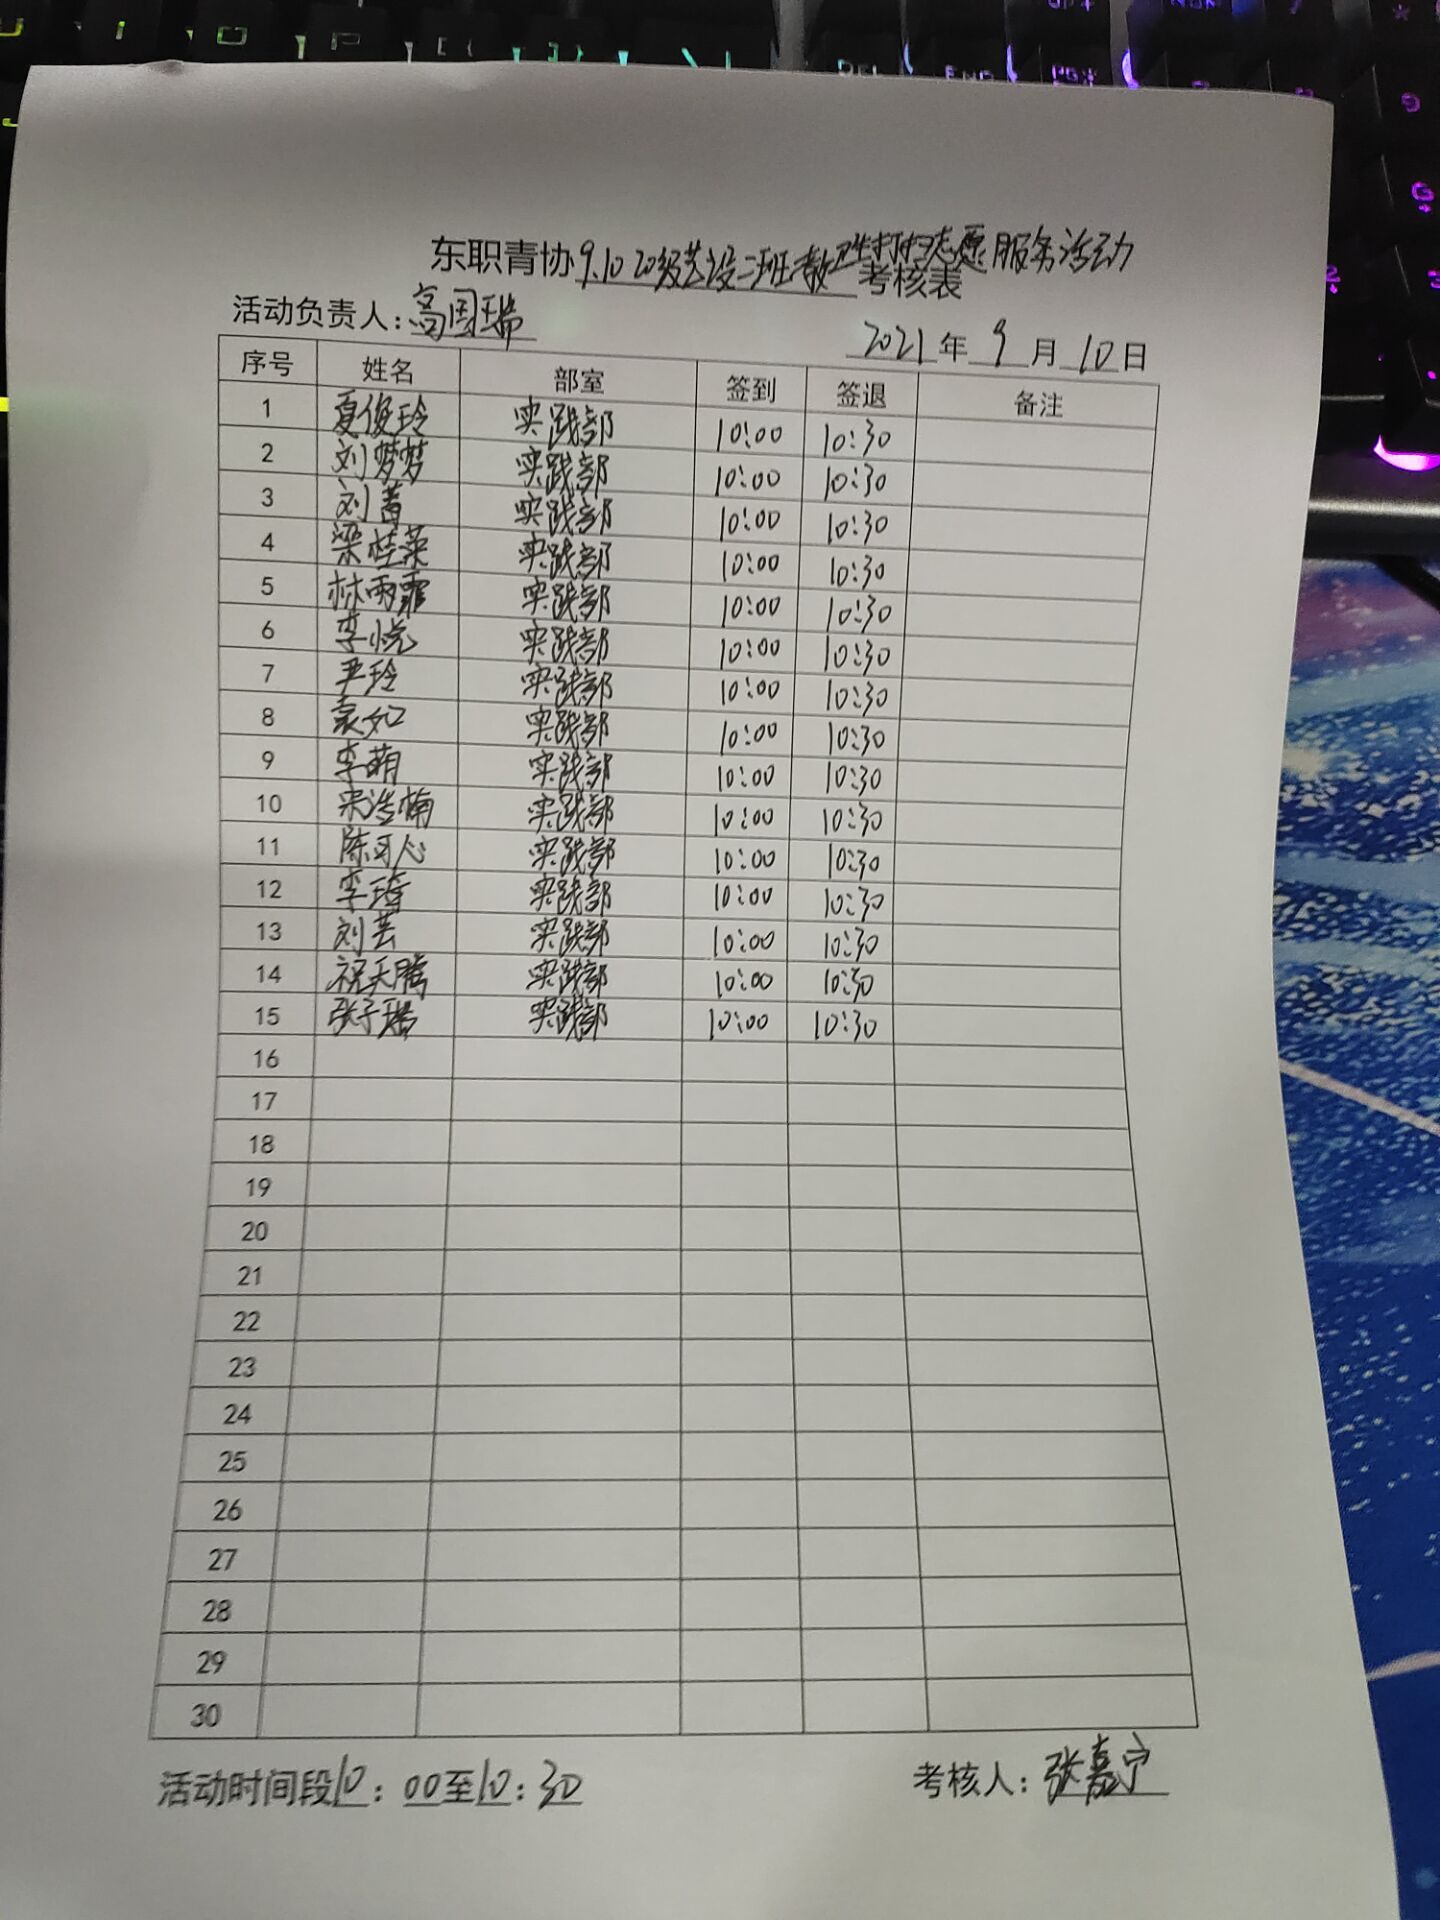 东职青协9.10 20级艺设二班教卫生打扫志愿服务活动考核表
活动负责人:高国瑞
2021年9月10日
序号 姓名 部室 签到 签退 备注
1 夏俊玲 实践部 10:00 10:30
2 刘梦梦 实践部 10:00 10:30
3 刘 实践部 10:00 10:30
4 梁桂荣 实践部 10:00 10:30
5 林雨霏 实践部 10:00 10:30
6 李悦 实践部 10:00 10:30
7 尹玲 实践部 10:00 10:30
8 袁如 实践部 10:00 10:30
9 李萌 实践部 10:00 10:30
10 宋浩楠 实践部 10:00 10:30
11 陈可心 实践部 10:00 10:30
12 李琦 实践部 10:00 10:30
13 刘芸 实践部 10:00 10:30
14 祝天腾 实践部 10:00 10:30
15 张子瑞 实践部 10:00 10:30
16
17
18
19
20
21
22
23
24
25
26
27
28
29
30
活动时间段10:00至10:30
考核人:张嘉宁